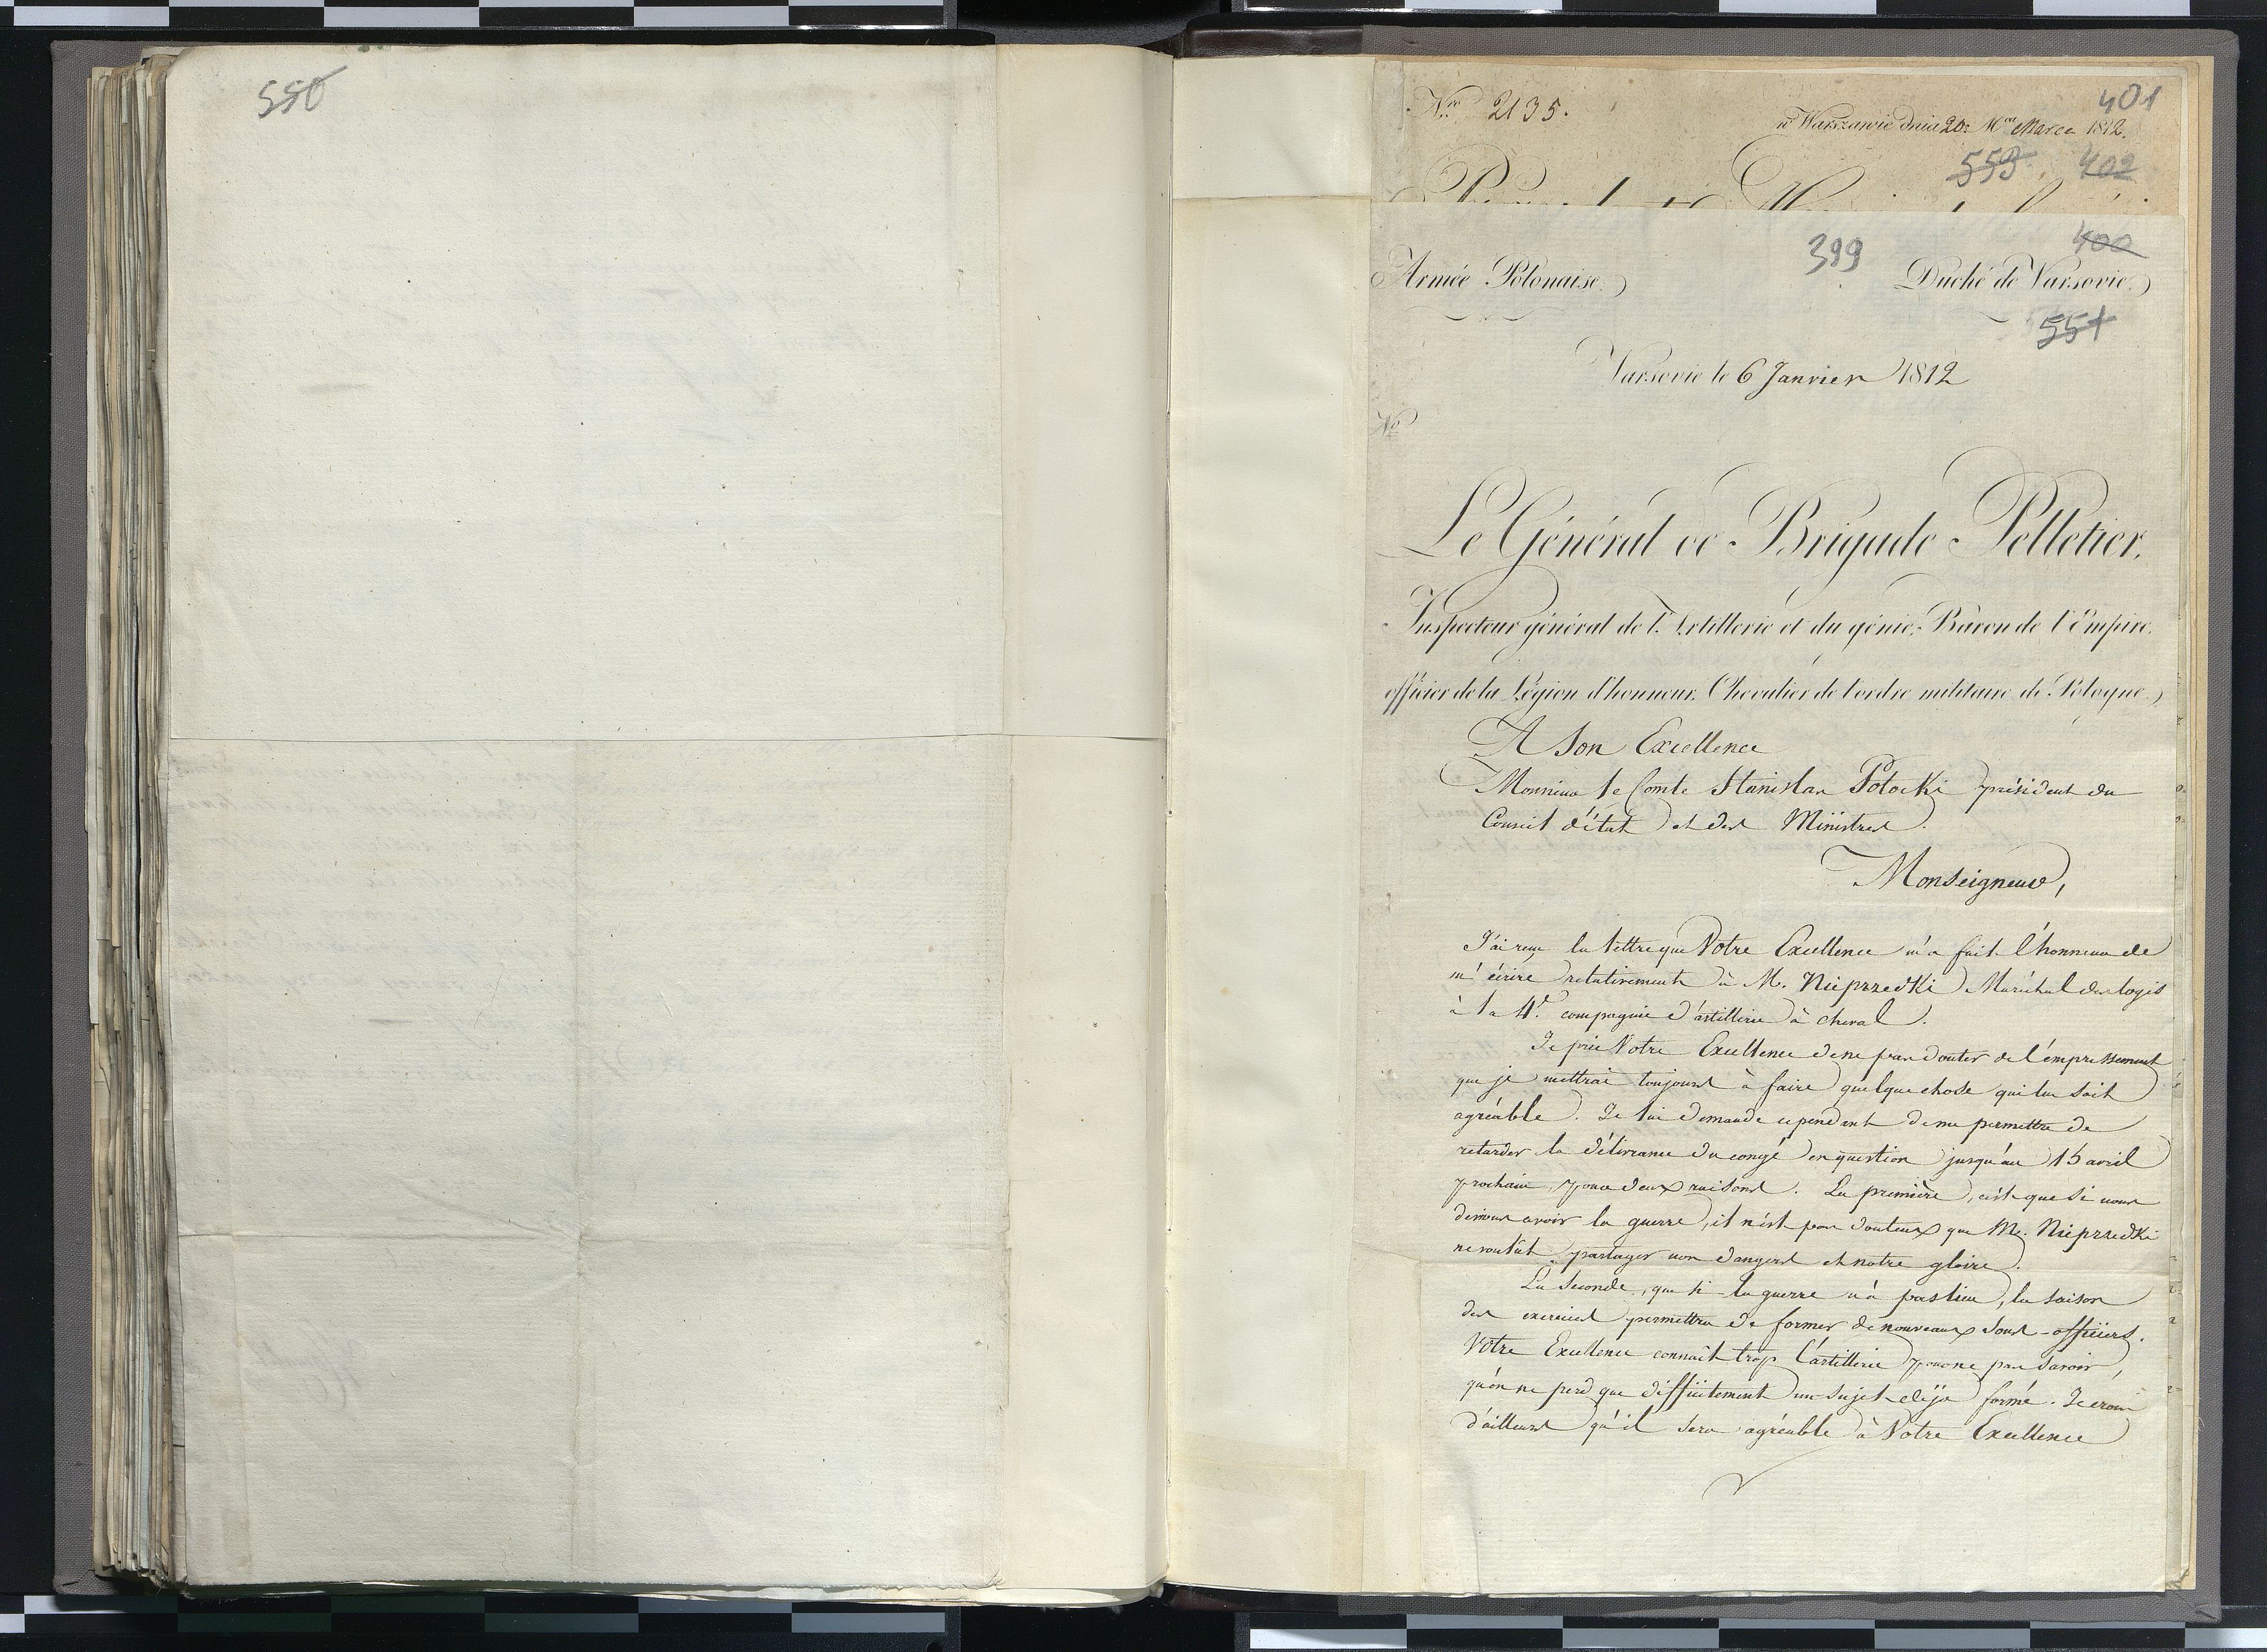 550
Nro 2135.
401
w Warszawie dnia 20. Mca Marca 1812.
553 402
399
400
Armée Polonaise.
Duché de Varsovie.
551
Varsovie le 6 Janvier 1812
No
Le Général de Brigade Pelletier,
Inspecteur général de l'Artillerie et du génie, Baron de l'Empire,
officier de la Légion d'honneur, Chevalier de l'ordre militaire de Pologne.
A Son Excellence
Monsieur le Comte Stanislas Potocki président du
Conseil d'état et des Ministres.
Monseigneur,
J'ai reçu la lettre que Votre Excellence m'a fait l'honneur de
m'écrire relativement à M. Nieprzedki Maréchal des logis
à la 4e. compagnie d'artillerie à cheval.
Je prie Votre Excellence de ne pas douter de l'empressement
que je mettrai toujours à faire quelque chose qui lui soit
agréable. Je lui demande cependant de me permettre de
retarder la délivrance du congé en question jusqu'au 15 avril
prochain, pour deux raisons. La première, c'est que si nous
devions avoir la guerre, il n'est pas douteux que Mr. Nieprzedki
ne voulût partager nos dangers et notre gloire.
La seconde, que si la guerre n'a pas lieu, la saison
des exercices permettra de former de nouveaux sous-officiers.
Votre Excellence connaît trop l'artillerie pour ne pas savoir,
qu'on ne perd que difficilement un sujet déja formé. Je crois
d'ailleurs qu'il sera agréable à Votre Excellence